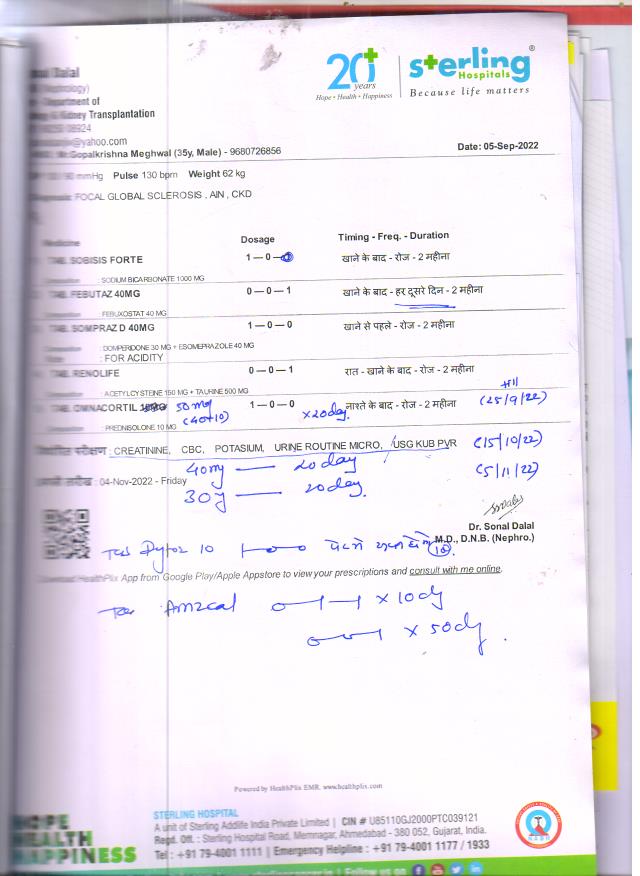 20+ years
Hope • Health • Happiness
sterling
Hospitals
Because life matters
Dalal
(Nephrology)
Department of
Kidney Transplantation
08924
@yahoo.com
Mr.Gopalkrishna Meghwal (35y, Male) - 9680726856
Date: 05-Sep-2022
mmHg Pulse 130 bpm Weight 62 kg
FOCAL GLOBAL SCLEROSIS , AIN , CKD
Medicine Dosage Timing - Freq. - Duration
TAB. SOBISIS FORTE 1 — 0 — खाने के बाद - रोज - 2 महीना
: SODIUM BICARBONATE 1000 MG
TAB. FEBUTAZ 40MG 0 — 0 — 1 खाने के बाद - हर दूसरे दिन - 2 महीना
: FEBUXOSTAT 40 MG
TAB. SOMPRAZ D 40MG 1 — 0 — 0 खाने से पहले - रोज - 2 महीना
: DOMPERIDONE 30 MG + ESOMEPRAZOLE 40 MG
: FOR ACIDITY
TAB. RENOLIFE 0 — 0 — 1 रात - खाने के बाद - रोज - 2 महीना
: ACETYLCYSTEINE 150 MG + TAURINE 500 MG
TAB. OMNACORTIL 50 mg 1 — 0 — 0 x 20 day नाश्ते के बाद - रोज - 2 महीना (25/9/22)
(40+10)
: PREDNISOLONE 10 MG
: CREATININE, CBC, POTASIUM, URINE ROUTINE MICRO, USG KUB PVR (15/10/22)
40 mg — 20 day
: 04-Nov-2022 - Friday (5/11/22)
30 — 20 day.
Dr. Sonal Dalal
M.D., D.N.B. (Nephro.)
Tab Dytor 10 1—0—0
Download HealthPlix App from Google Play/Apple Appstore to view your prescriptions and consult with me online.
0—1—1 x 10 dy
x 50 dy.
Powered by HealthPlix EMR. www.healthplix.com
HOPE
HEALTH
HAPPINESS
STERLING HOSPITAL
A unit of Sterling Addlife India Private Limited | CIN # U85110GJ2000PTC039121
Regd. Off. : Sterling Hospital Road, Memnagar, Ahmedabad - 380 052, Gujarat, India.
Tel : +91 79-4001 1111 | Emergency Helpline : +91 79-4001 1177 / 1933
Follow us on